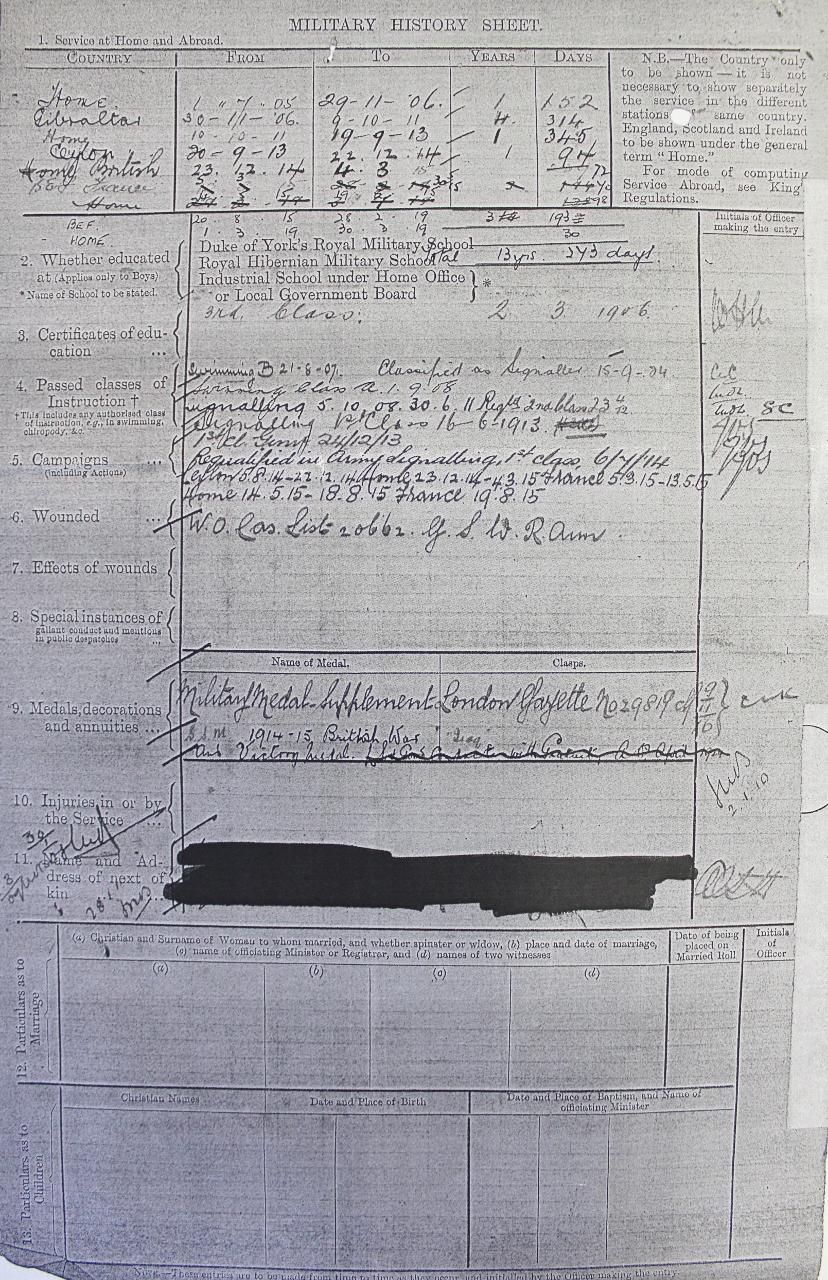 MILITARY HISTORY SHEET.
1. Service at Home and Abroad.
COUNTRY FROM TO YEARS DAYS
Home. 1 " 7 . 05 29-11-'06. 1 152
Gibraltar 30-11-'06. 9-10-11 4. 314
Home 10-10-11 19-9-13 1 345
Ceylon 20-9-13 22.12.14 1 94
Home British 23.12.14 4. 3
Home
N.B.—The Country only
to be shown—it is not
necessary to show separately
the service in the different
stations same country.
England, Scotland and Ireland
to be shown under the general
term "Home."
For mode of computing
Service Abroad, see King's
Regulations.
BEF. 20 8 15 28 2 19 3 193
- HOME. 1 3 19 30 3 19 30
13 yrs 273 days.
Initials of Officer
making the entry
2. Whether educated
at (Applies only to Boys)
* Name of School to be stated.
Duke of York's Royal Military School
Royal Hibernian Military School
Industrial School under Home Office
or Local Government Board *
3. Certificates of edu-
cation ...
3rd. Class. 2 3 1906.
4. Passed classes of
Instruction †
† This includes any authorised class
of instruction, e.g., in swimming,
chiropody, &c.
Swimming B 21-8-07. Classified as Signaller 15-9-04
Swimming Class A. 1.9.08
Signalling 5.10.08. 30.6.11 Regtl 2nd Class 23 4/12
Signalling 1st Class 16-6-1913.
1st Cl. Gym 24/12/13
Requalified in Army Signalling, 1st class, 6/7/14
5. Campaigns ...
(including Actions)
Ceylon 5.8.14-22.12.14 Home 23.12.14-4.3.15 France 5.3.15-13.5.15
Home 14.5.15-18.8.15 France 19.8.15
6. Wounded ...
W.O. Cas. List 20662. G. S. W. R. Arm
7. Effects of wounds
8. Special instances of
gallant conduct and mentions
in public despatches ...
Name of Medal. Clasps.
9. Medals, decorations
and annuities ...
Military Medal-Supplement-London Gazette No 29819 d/
1914-15 British War
And Victory Medal.
10. Injuries in or by
the Service ...
11. Name and Ad-
dress of next of
kin ...
12. Particulars as to
Marriage
(a) Christian and Surname of Woman to whom married, and whether spinster or widow, (b) place and date of marriage,
(c) name of officiating Minister or Registrar, and (d) names of two witnesses
Date of being
placed on
Married Roll
Initials
of
Officer
(a) (b) (c) (d)
13. Particulars as to
Children
Christian Names Date and Place of Birth Date and Place of Baptism, and Name of
officiating Minister
NOTE.—These entries are to be made from time to time as they occur, and initialled by the Officer making the entry.